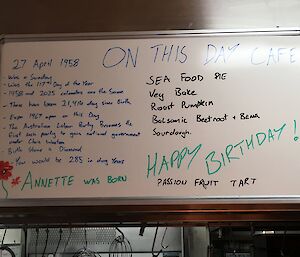 27 April 1958
ON THIS DAY CAFE
- Was a Sunday
- Was the 117th Day of the Year
- 1958 and 2025 calendars are the Same
- There have been 21,4 days since Birth
- Expo 1967 open on this Day
- The Australian Labor Party Becomes the
First such party to gain national government
under Chris Watson
Birth Stone is Diamond
Your would be 285 in dog years
* ANNETTE WAS BORN
SEA FOOD PIE
Veg Bake
Roast Pumpkin
Balsamic Beetroot + Beans
Sourdough.
HAPPY BIRTHDAY!
PASSION FRUIT TART